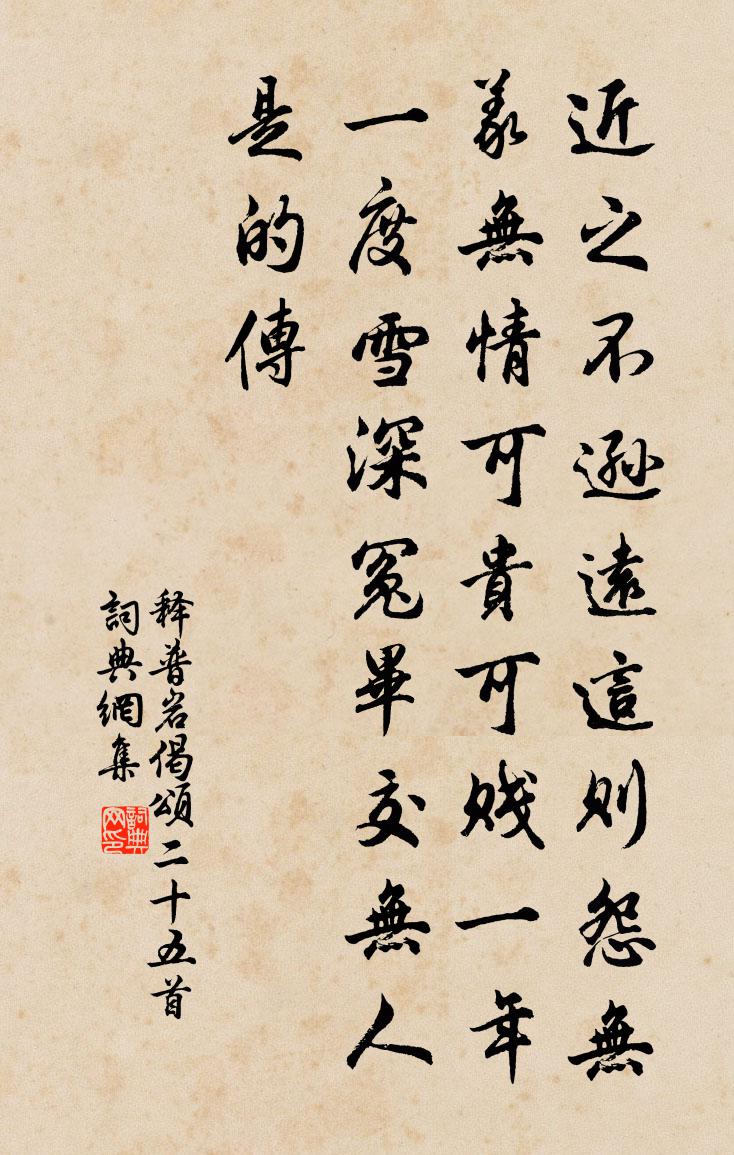 近之不遜遠這則怨無
義無情可貴可賤一年
一度雪深冤畢交無人
是的傳
释普岩偈頌二十五首
詞典網集
詞典网印